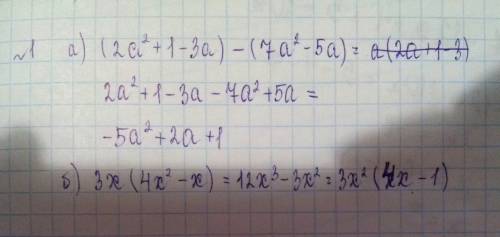 №1 а) (2a²+1-3a)-(7a²-5a)= a(2a+1-3)
2a²+1-3a-7a²+5a=
-5a²+2a+1
б) 3x(4x²-x)=12x³-3x²=3x²(4x-1)